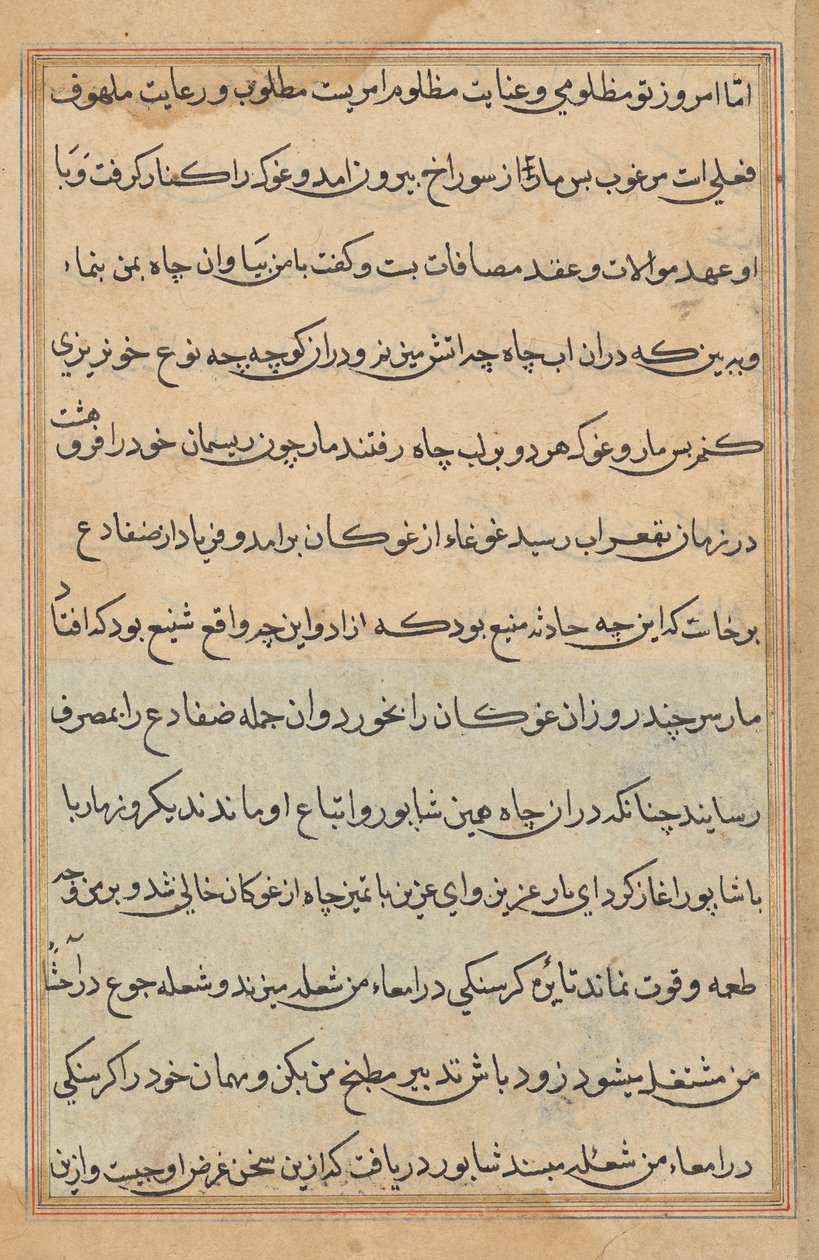 امّا امروز تو مظلومي و عنایت مظلوم امریست مطلوب و رعایت ملهوف
فعلي است مرغوب بس مار از سوراخ بیرون امد و غوک را کنار کرفت وَبَا
او عهد موالات و عقد مصافات بست و کفت با من بَیا و ان چاه بمن بنماء
و ببین که دران اب چاه چه اتش میزنم و دران کوچه چه نوع خونریزي
کنم بس مار و غوک هر دو بر لب چاه رفتند مار چون ریسمان خود را فرو هشت
در زمان بقعر اب رسید غوغاء از غوکان برامد و فریاد از ضفادع
برخاست که این چه حادثه منیع بود که ازاد و این چه واقع شنیع بود که افتاد
مار سر چند روز ان غوکان را بخورد و ان جمله ضفادع را بمصرف
رسایند چنانکه دران چاه همین شاپور و اتباع او ماندند یکروز مار با
با شاپور اغاز کرد اي یار عزیز و اي عزیز با تمیز چاه از غوکان خالي شد و بر من وجه
طعمه و قوت نماند تایٔره کرسنکي در امعاء من شعله میزند و شعله جوع در آحشاً
من مشتعل میشود زود باش تدبیر مطبخ من بکن و مهمان خود را کرسنکي
در امعاء من شعله مبسند شابور دریافت که ازین سخن غرض او چیست و ازین